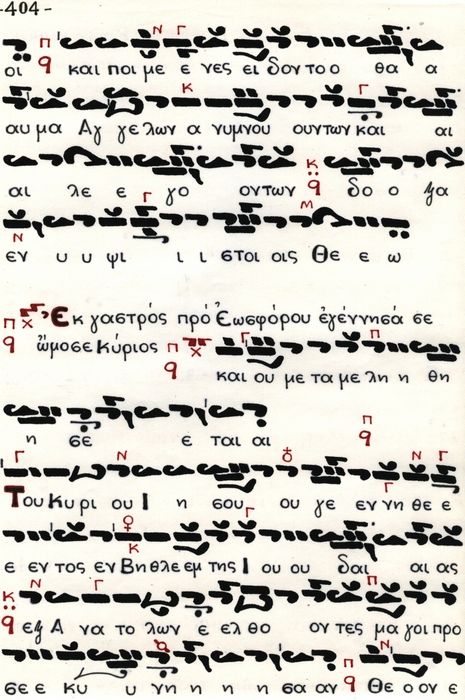 -404-
οι και ποι με ε νες ει δον το ο θα α
αυ μα Αγ γε λων α νυμνου ουντων και αι
αι λε ε γο οντων δο ο ξα
εν υ υ ψι ι ι στοι οις Θε ε ω
Εκ γαστρός πρό Εωσφόρου ἐγέννησά σε
ὤμοσε Κύριος
και ου με τα με λη η θη
η σε ε ται αι
Του Κυ ρι ου Ι η σου ου γε εν νη θε ε
ε εν τος εν Βη θλε εμ της Ι ου ου δαι αι ας
εξ Α να το λων ε ελ θο ον τες μα γοι προ
σε ε κυ υ νη η η η σα αν Θε ο ον ε